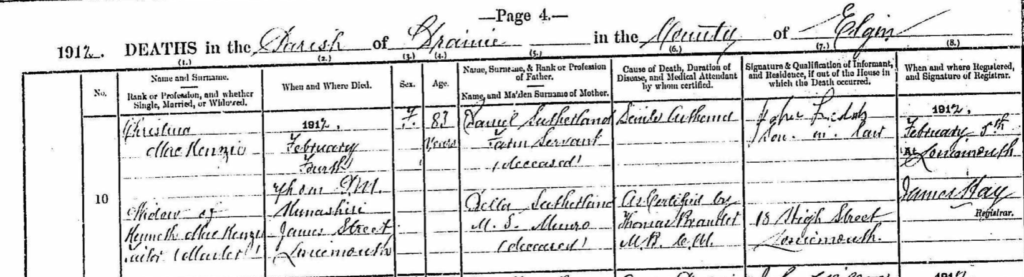 —Page 4.—
1912. DEATHS in the Parish of Drainie in the County of Elgin
(1.) (2.) (3.) (4.) (5.) (6.) (7.) (8.)
No.
Name and Surname.
Rank or Profession, and whether Single, Married, or Widowed.
When and Where Died.
Sex.
Age.
Name, Surname, & Rank or Profession of Father.
Name, and Maiden Surname of Mother.
Cause of Death, Duration of Disease, and Medical Attendant by whom certified.
Signature & Qualification of Informant, and Residence, if out of the House in which the Death occurred.
When and where Registered, and Signature of Registrar.
10
Christina
MacKenzie
Widow of
Kenneth MacKenzie
Tailor (Master)
1912.
February
Fourth
7h 0m P.M.
James Street
Lossiemouth
F.
83
Years
Daniel Sutherland
Farm Servant
(deceased)
Bella Sutherland
M.S. Munro
(deceased)
Senile
As Certified by
Thomas Brander
M.B. C.M.
Son in law
18 High Street
Lossiemouth.
1912.
February 5th
At Lossiemouth
James Kay
Registrar.